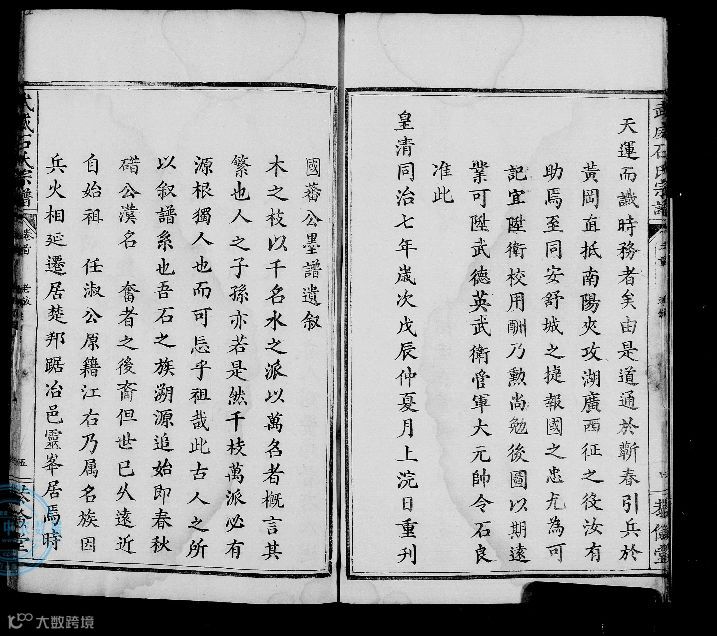 武威石氏宗譜
天運而識時務者矣由是道通於蘄春引兵於
黃岡直抵南陽夾攻湖廣西征之後汝有
助焉至同安舒城之捷報國之忠尤為可
記宜陞衛校用酬乃勲尚勉後圖以期遠
業可陞武德英武衛管軍大元帥令石良
准此
皇清同治七年歲次戊辰仲夏月上浣日重刊
國蕃公墨譜遺叙
木之枝以千名水之派以萬名者概言其
繁也人之子孫亦若是然千枝萬派必有
源根獨人也而可忘乎祖哉此古人之所
以叙譜系也吾石之族朔源追始即春秋
碏公漢名 奮者之後裔但世已久遠近
自始祖 任淑公原籍江右乃属名族因
兵火相延遷居楚邦踞冶邑靈峯居焉時
武威石氏宗譜
卷首
五
大数跨境